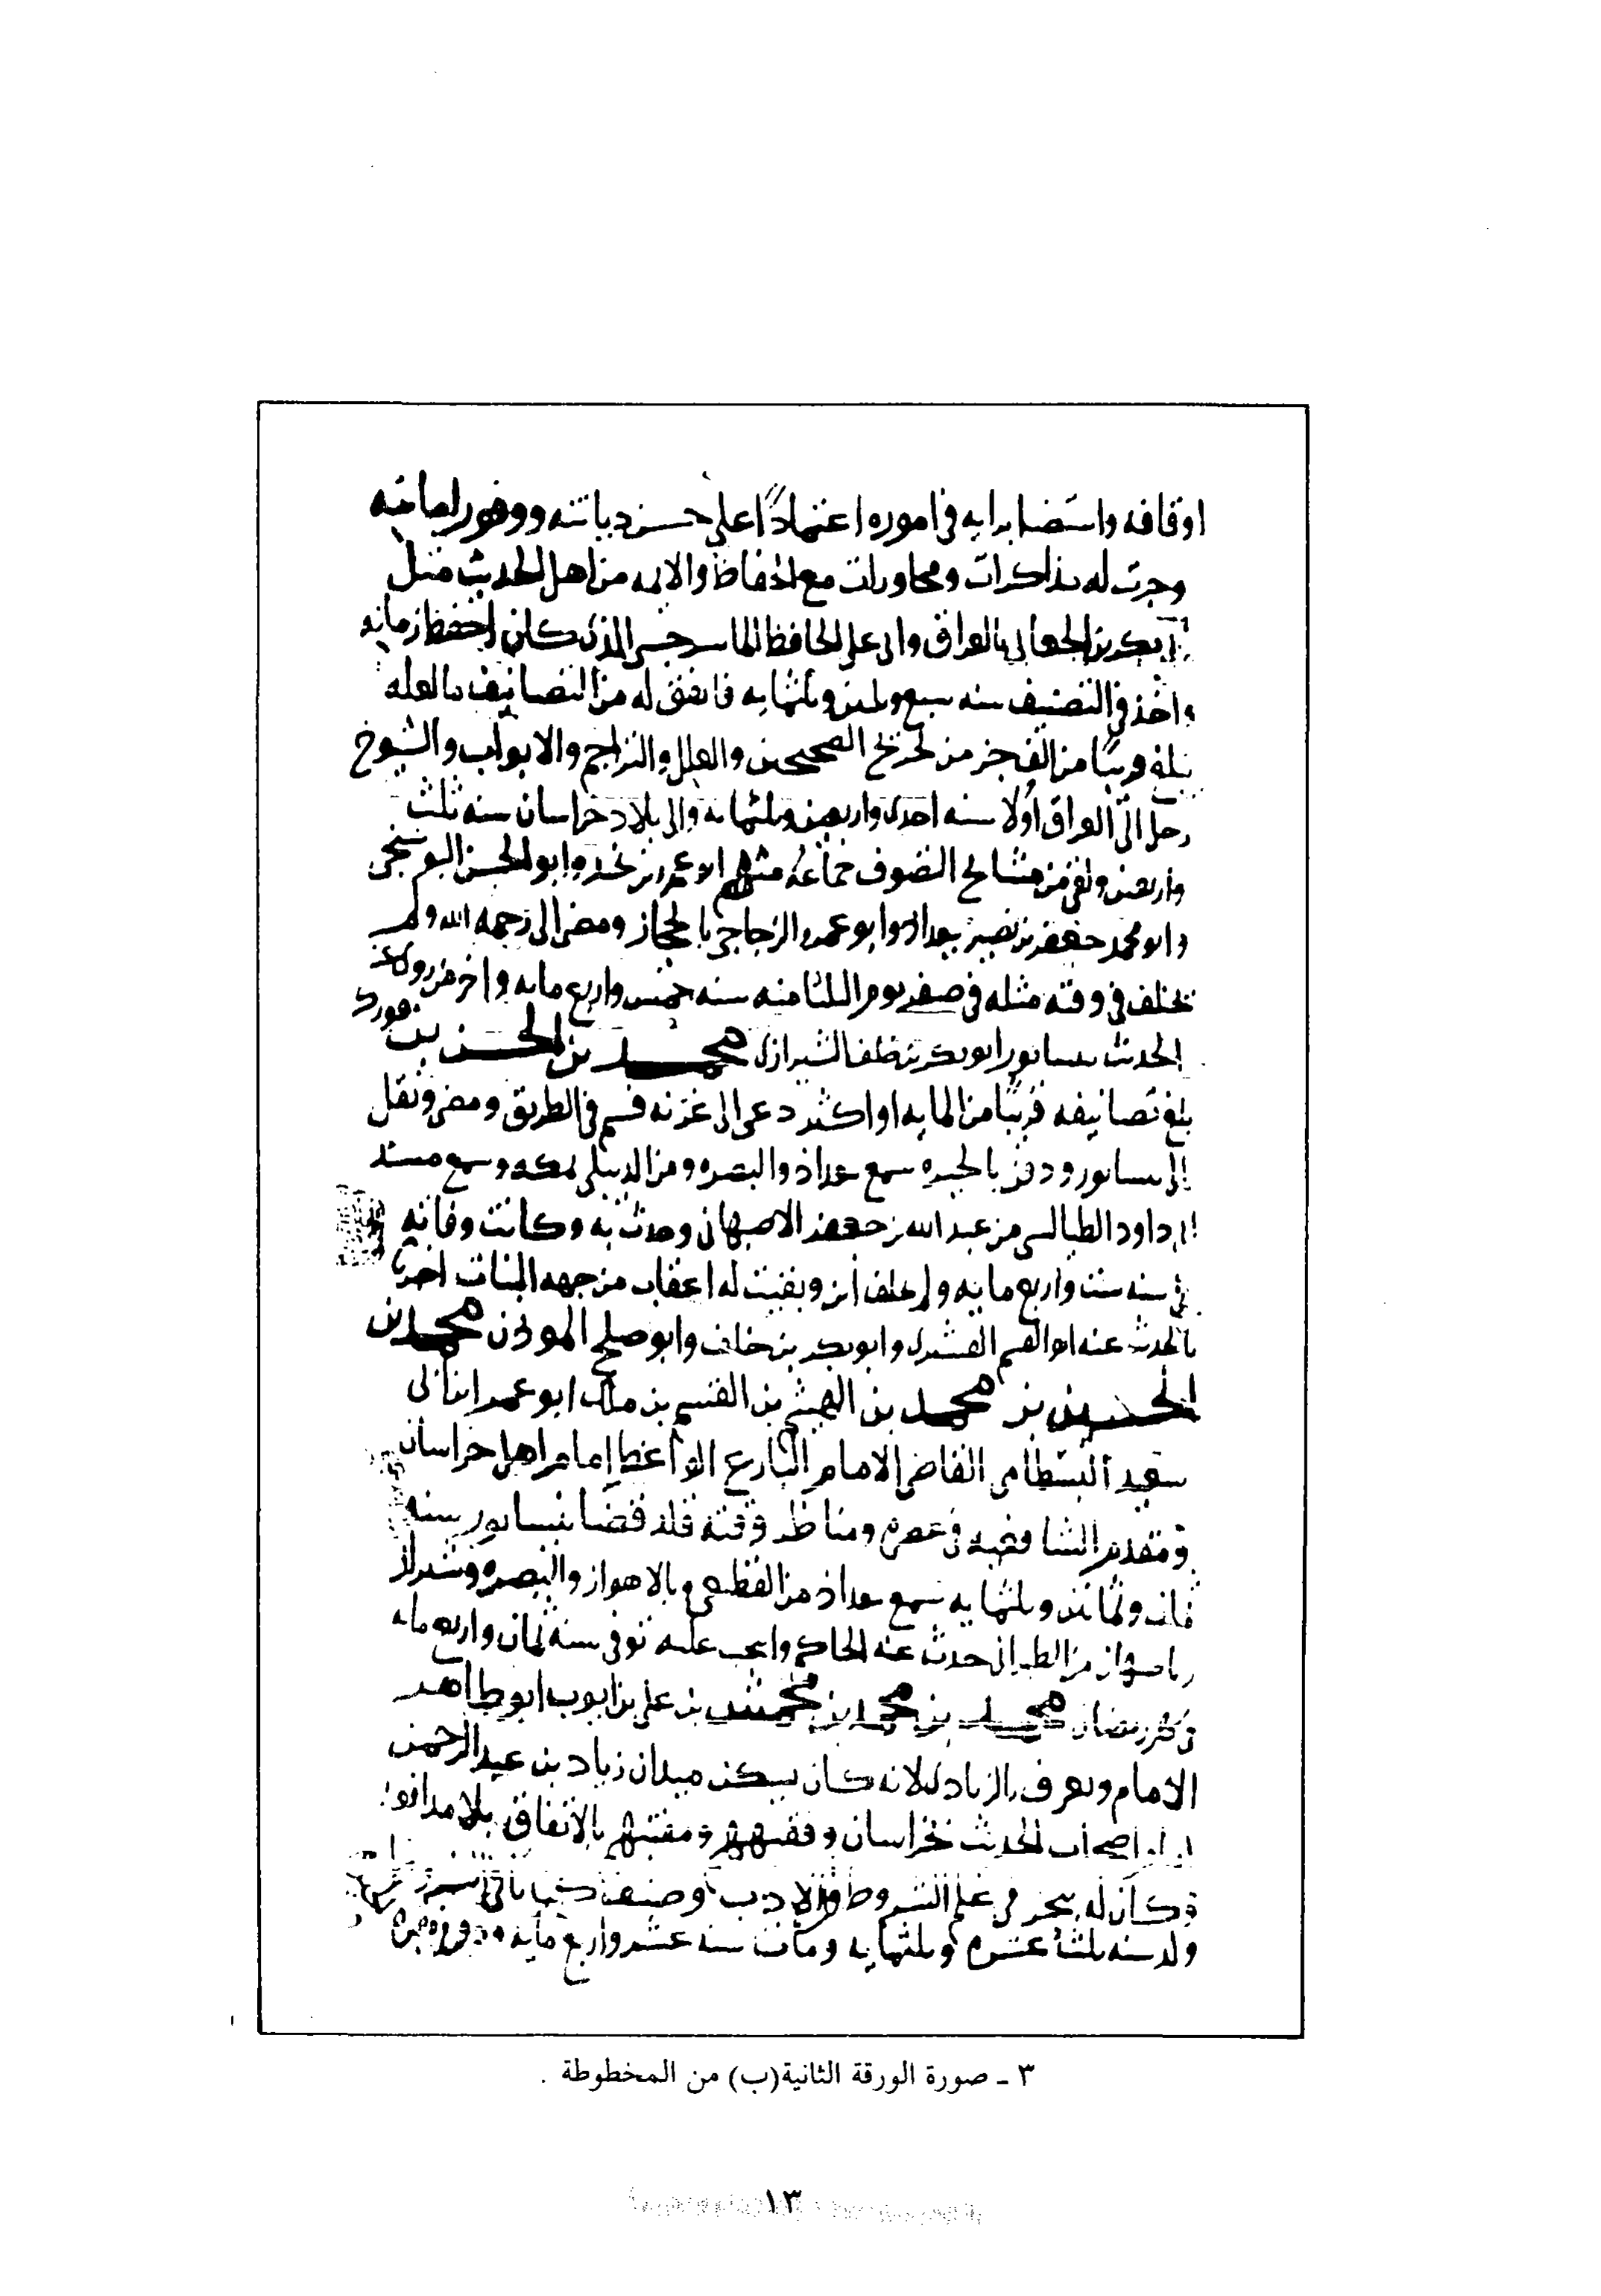 اوقافه واستضا برايه في اموره اعتمادًا على حسن ديانته ووفور امانته
وجرت له مذاكرات ومحاورات مع الحفاظ والايمه من اهل الحديث مثل
ابى بكر بن الجعابى بالعراق وابى على الحافظ الماسرجسى الذى كان احفظ زمانه
واخذ فى التصنيف سنه سبع وثلثين وثلثمايه فاتفق له من التصانيف ما لعله
يبلغ قريبًا من الف جزء من تخريج الصحيحين والعلل والتراجم والابواب والشيوخ
رحل الى العراق اولا سنه احدى واربعين وثلثمايه والى بلاد خراسان سنه ثلث
واربعين ولقى من مشايخ التصوف جماعة منهم ابو عمرو بن نجيد وابو الحسن البوشنجى
وابو محمد جعفر بن نصير ببغداد وابو عمرو الزجاجى بالحجاز ومضى الى رحمه الله ولم
يخلف فى وقته مثله فى صفر يوم الثلثا منه سنه خمس واربع مايه واخر من روى عنه
الحديث بنيسابور ابو بكر بن خلف الشيرازى محمد بن الحسن بن فورك
بلغ تصانيفه قريبًا من المايه او اكثر دعى الى غزنه فسم فى الطريق ومضى ونقل
الى نيسابور ودفن بالحيره سمع ببغداذ والبصره ومن الديبلى بمكه وسمع مسند
ابى داود الطيالسى من عبد الله بن جعفر الاصبهانى وحدث به وكانت وفاته
فى سنه ست واربع مايه ولم يخلف ابن وبقيت له اعقاب من جهه البنات اخبرنا
بالحديث عنه ابو القسم القشيرى وابو بكر بن خلف وابو صلح الموذن محمد بن
الحسين بن محمد بن الهيثم بن القسم بن ملك ابو عمر ابن ابى
سعيد البسطامى القاضى الامام البارع الواعظ امام اهل خراسان
ومتقدم الشافعيه فى عصره ومناظر وقته قلد قضا نيسابور سنه
ثمان وثمانين وثلثمايه سمع ببغداذ من القطيعى وبالاهواز والبصره وشيراز
وباصبهان من الطبرانى حدث عنه الحاكم وانتخب عليه توفى سنه ثمان واربع مايه
محمد بن محمد بن محمش بن على بن ايوب ابو طاهر
الامام ويعرف بالزيادى لانه كان يسكن ميدان زياد بن عبد الرحمن
امام اصحاب الحديث بخراسان وفقيههم ومفتيهم بالاتفاق بلا مدافعه
وكان له تبحر فى علم الشروط والادب وصنف كتبا
ولد سنه ثلث عشره وثلثمايه ومات سنه عشر واربع مايه
٣ ـ صورة الورقة الثانية(ب) من المخطوطة .
١٣